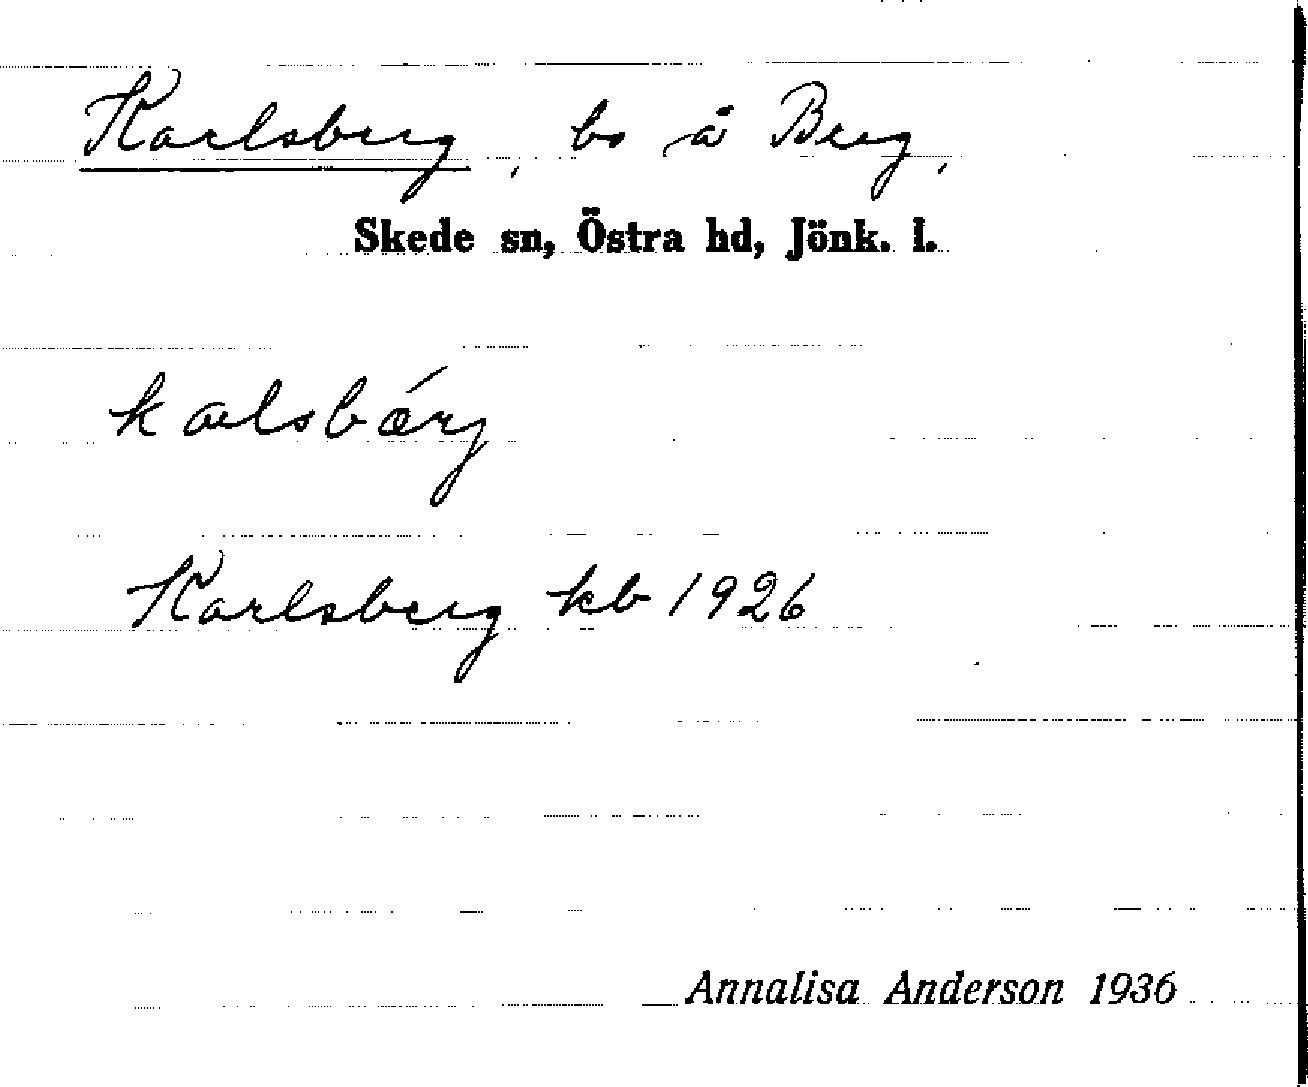 Karlsberg, bo å Berg,
Skede sn, Östra hd, Jönk. l.
kalsbárj
Karlsberg kb 1926
Annalisa Anderson 1936